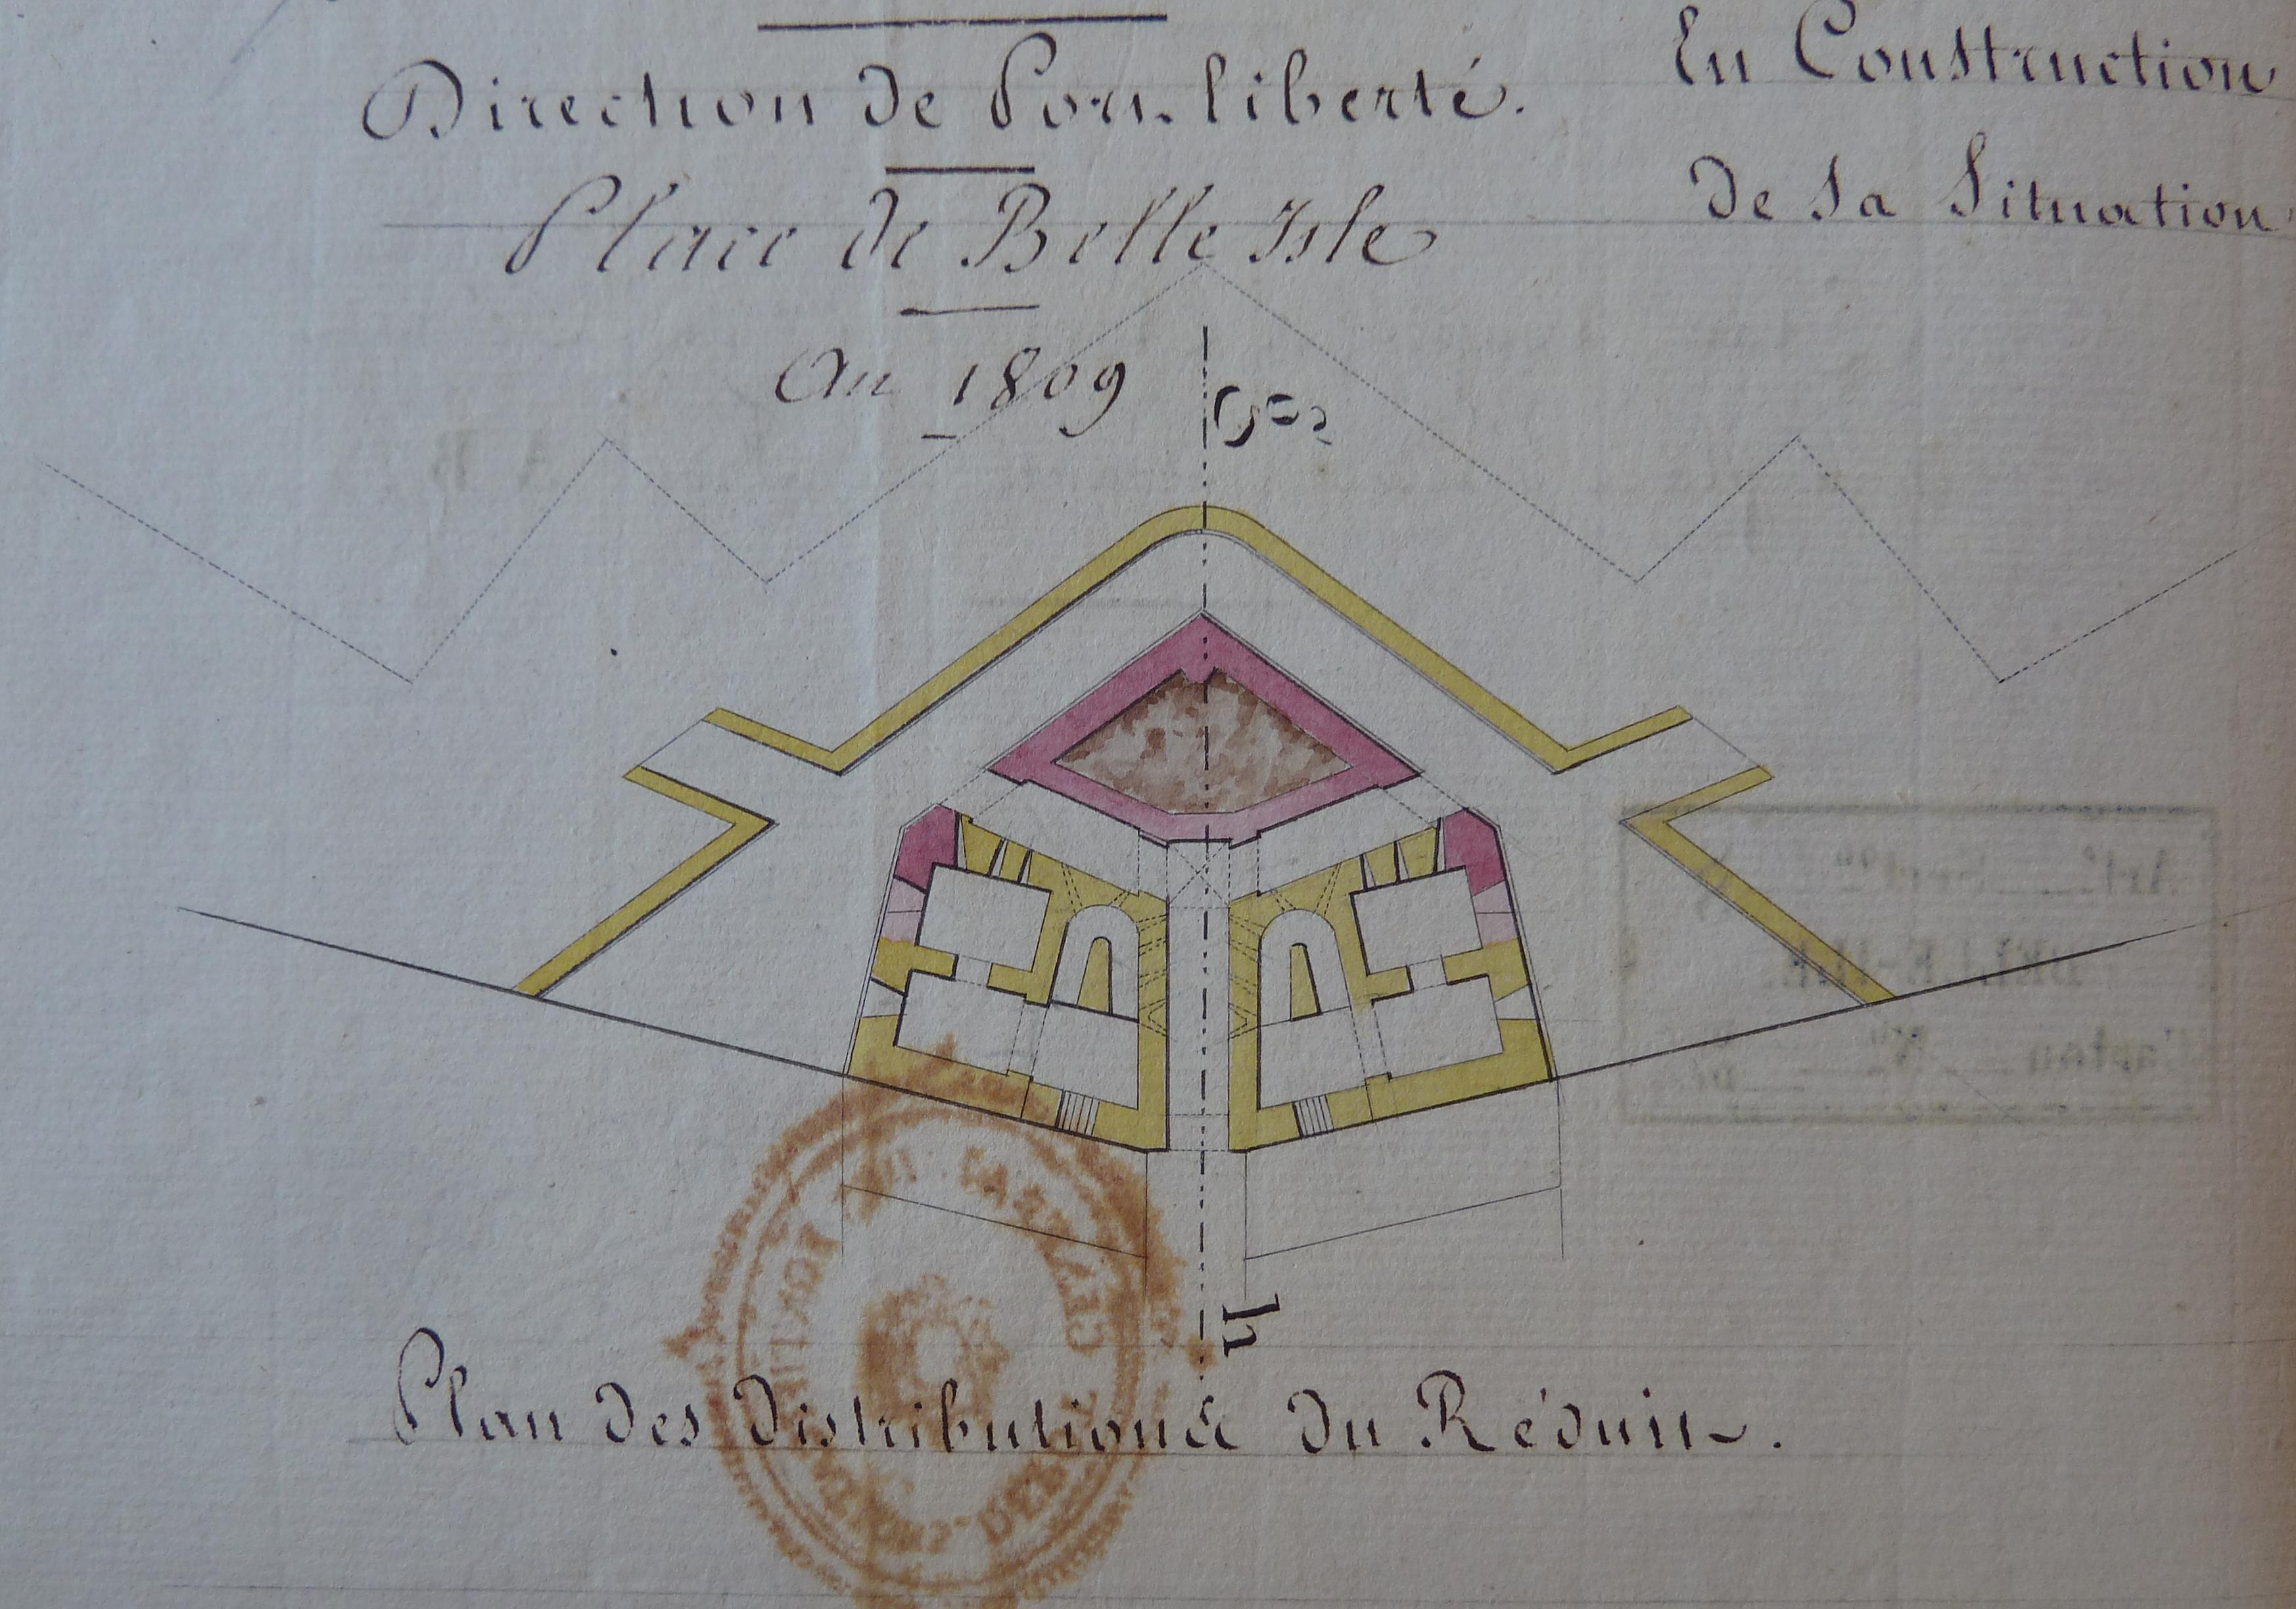 Direction de Port-liberté.
Place de Belle Isle
An 1809
En Construction
de sa Situation
Plan des distributions du Réduit.